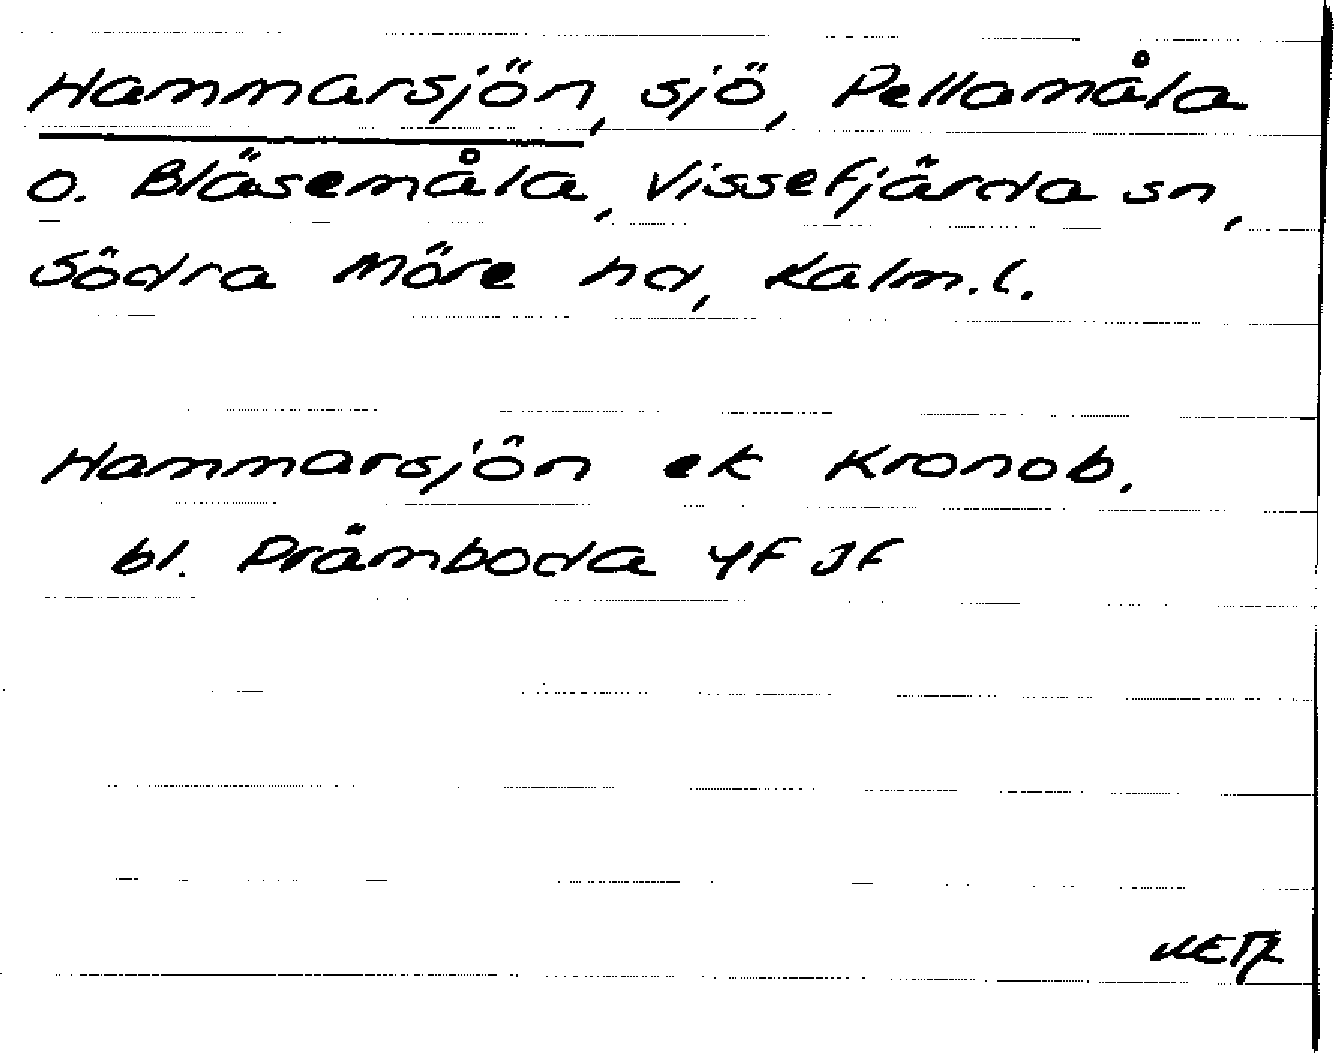 Hammarsjön, sjö, Pellamåla
o. Bläsemåla, Vissefjärda sn,
Södra Möre hd, Kalm.l.
Hammarsjön ek Kronob.
bl. Drämboda 4f Jf